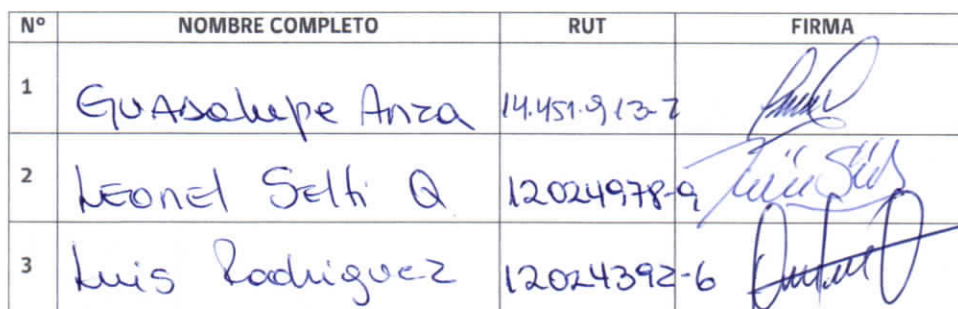 Nº NOMBRE COMPLETO RUT FIRMA
1 Guadalupe Anza 14.451.913-7
2 Leonel Selti Q 12024978-9
3 Luis Rodriguez 12024392-6